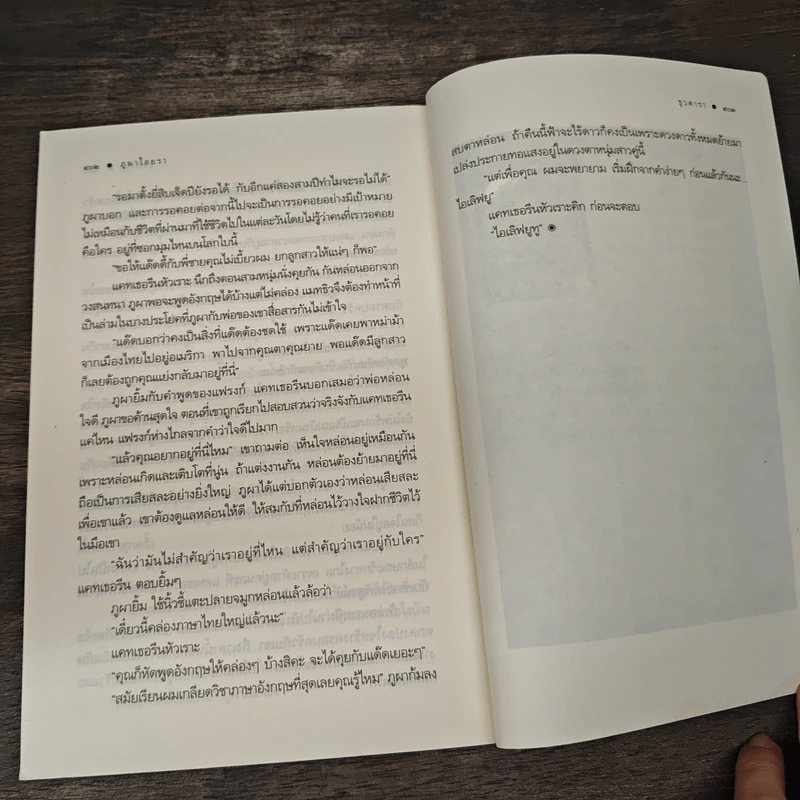 ๔๖๒ ● ภูผาไอยรา
"รอมาตั้งยี่สิบเจ็ดปียังรอได้ กับอีกแค่สองสามปีทำไมจะรอไม่ได้"
ภูผาบอก และการรอคอยต่อจากนี้ไปจะเป็นการรอคอยอย่างมีเป้าหมาย
ไม่เหมือนกับชีวิตที่ผ่านมาที่ใช้ชีวิตไปในแต่ละวันโดยไม่รู้ว่าคนที่เรารอคอย
คือใคร อยู่ที่ซอกมุมไหนบนโลกใบนี้
"ขอให้แด๊ดดี้กับพี่ชายคุณไม่เบี้ยวผม ยกลูกสาวให้แน่ๆ ก็พอ"
แคทเธอรีนหัวเราะ นึกถึงตอนสามหนุ่มนั่งคุยกัน กันหล่อนออกจาก
วงสนทนา ภูผาพอจะพูดอังกฤษได้บ้างแต่ไม่คล่อง แมทธิวจึงต้องทำหน้าที่
เป็นล่ามในบางประโยคที่ภูผากับพ่อของเขาสื่อสารกันไม่เข้าใจ
"แด๊ดบอกว่าคงเป็นสิ่งที่แด๊ดต้องชดใช้ เพราะแด๊ดเคยพาหม่าม้า
จากเมืองไทยไปอยู่อเมริกา พาไปจากคุณตาคุณยาย พอแด๊ดมีลูกสาว
ก็เลยต้องถูกคุณแย่งกลับมาอยู่ที่นี่"
ภูผายิ้มกับคำพูดของแฟรงก์ แคทเธอรีนบอกเสมอว่าพ่อหล่อน
ใจดี ภูผาขอค้านสุดใจ ตอนที่เขาถูกเรียกไปสอบสวนว่าจริงจังกับแคทเธอรีน
แค่ไหน แฟรงก์ห่างไกลจากคำว่าใจดีไปมาก
"แล้วคุณอยากอยู่ที่นี่ไหม" เขาถามต่อ เห็นใจหล่อนอยู่เหมือนกัน
เพราะหล่อนเกิดและเติบโตที่นู่น ถ้าแต่งงานกัน หล่อนต้องย้ายมาอยู่ที่นี่
ถือเป็นการเสียสละอย่างยิ่งใหญ่ ภูผาได้แต่บอกตัวเองว่าหล่อนเสียสละ
เพื่อเขาแล้ว เขาต้องดูแลหล่อนให้ดี ให้สมกับที่หล่อนไว้วางใจฝากชีวิตไว้
ในมือเขา
"ฉันว่ามันไม่สำคัญว่าเราอยู่ที่ไหน แต่สำคัญว่าเราอยู่กับใคร"
แคทเธอรีน ตอบยิ้มๆ
ภูผายิ้ม ใช้นิ้วชี้แตะปลายจมูกหล่อนแล้วล้อว่า
"เดี๋ยวนี้คล่องภาษาไทยใหญ่แล้วนะ"
แคทเธอรีนหัวเราะ
"คุณก็หัดพูดอังกฤษให้คล่องๆ บ้างสิคะ จะได้คุยกับแด๊ดเยอะๆ"
"สมัยเรียนผมเกลียดวิชาภาษาอังกฤษที่สุดเลยคุณรู้ไหม" ภูผาก้มลง
ชูวดารา ● ๔๖๓
สบตาหล่อน ถ้าคืนนี้ฟ้าจะไร้ดาวก็คงเป็นเพราะดวงดาวทั้งหมดย้ายมา
เปล่งประกายทอแสงอยู่ในดวงตาหนุ่มสาวคู่นี้
"แต่เพื่อคุณ ผมจะพยายาม เริ่มฝึกจากคำง่ายๆ ก่อนแล้วกันนะ...
ไอเลิฟยู"
แคทเธอรีนหัวเราะคิก ก่อนจะตอบ
"ไอเลิฟยูทู" ◉